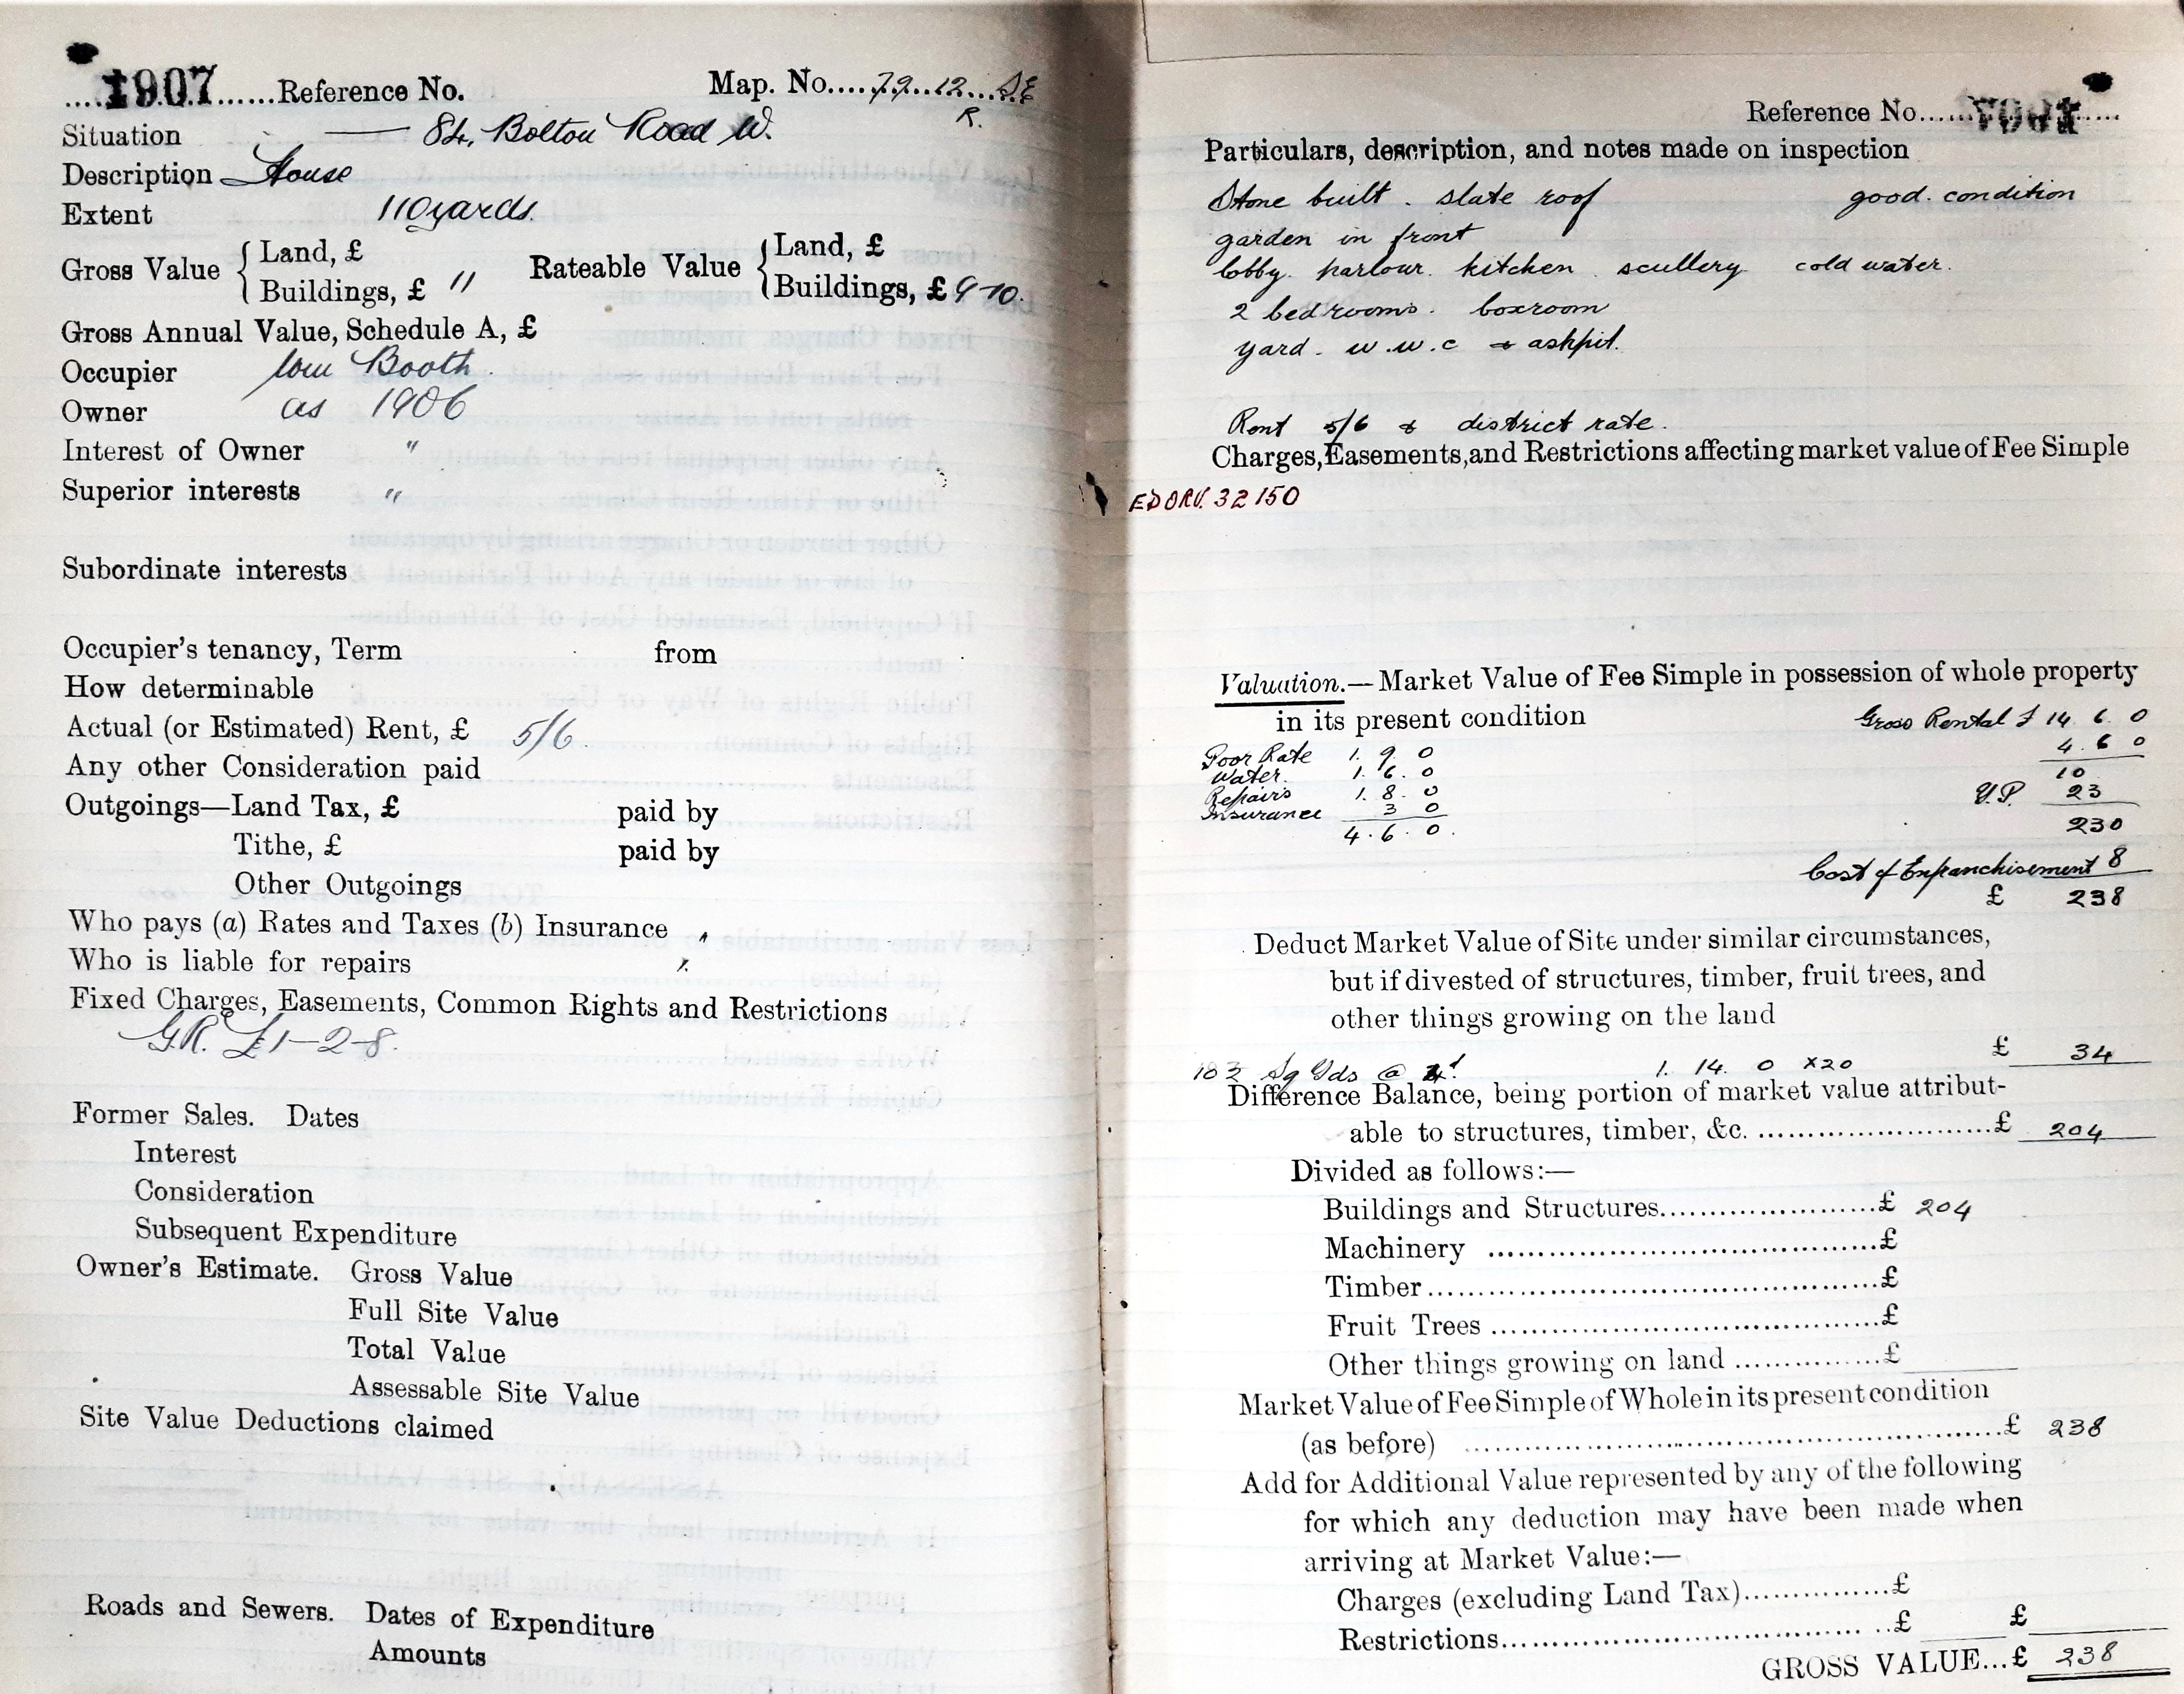 1907 Reference No. Map. No. 79.12. SE
R.
Situation — 84, Bolton Road W.
Description House
Extent 110 yards.
Gross Value { Land, £
Buildings, £ 11
Rateable Value { Land, £
Buildings, £ 9-10.
Gross Annual Value, Schedule A, £
Occupier Wm Booth.
Owner as 1906
Interest of Owner "
Superior interests "
Subordinate interests
Occupier's tenancy, Term from
How determinable
Actual (or Estimated) Rent, £ 5/6.
Any other Consideration paid
Outgoings—Land Tax, £ paid by
Tithe, £ paid by
Other Outgoings
Who pays (a) Rates and Taxes (b) Insurance
Who is liable for repairs
Fixed Charges, Easements, Common Rights and Restrictions
G.R. £1-2-8.
Former Sales. Dates
Interest
Consideration
Subsequent Expenditure
Owner's Estimate. Gross Value
Full Site Value
Total Value
Assessable Site Value
Site Value Deductions claimed
Roads and Sewers. Dates of Expenditure
Amounts
Reference No. 1907
Particulars, description, and notes made on inspection
Stone built. slate roof good. condition
garden in front
lobby. parlour. kitchen. scullery cold water.
2 bedrooms. boxroom
yard. w.w.c & ashpit.
Rent 5/6 & district rate.
Charges, Easements, and Restrictions affecting market value of Fee Simple
32150
Valuation.—Market Value of Fee Simple in possession of whole property
in its present condition Gross Rental £ 14. 6. 0
Poor Rate 1. 9. 0 4. 6 0
Water. 1. 6. 0 10
Repairs 1. 8. 0 Y.P. 23
Insurance 3 0 230
4. 6. 0.
Cost of Enfranchisement 8
£ 238
Deduct Market Value of Site under similar circumstances,
but if divested of structures, timber, fruit trees, and
other things growing on the land
£ 34
Sq Yds @ 1. 14. 0 x20
Difference Balance, being portion of market value attribut-
able to structures, timber, &c. £ 204
Divided as follows:—
Buildings and Structures £ 204
Machinery £
Timber £
Fruit Trees £
Other things growing on land £
Market Value of Fee Simple of Whole in its present condition
(as before) £ 238
Add for Additional Value represented by any of the following
for which any deduction may have been made when
arriving at Market Value:—
Charges (excluding Land Tax) £
Restrictions £ £
GROSS VALUE...£ 238